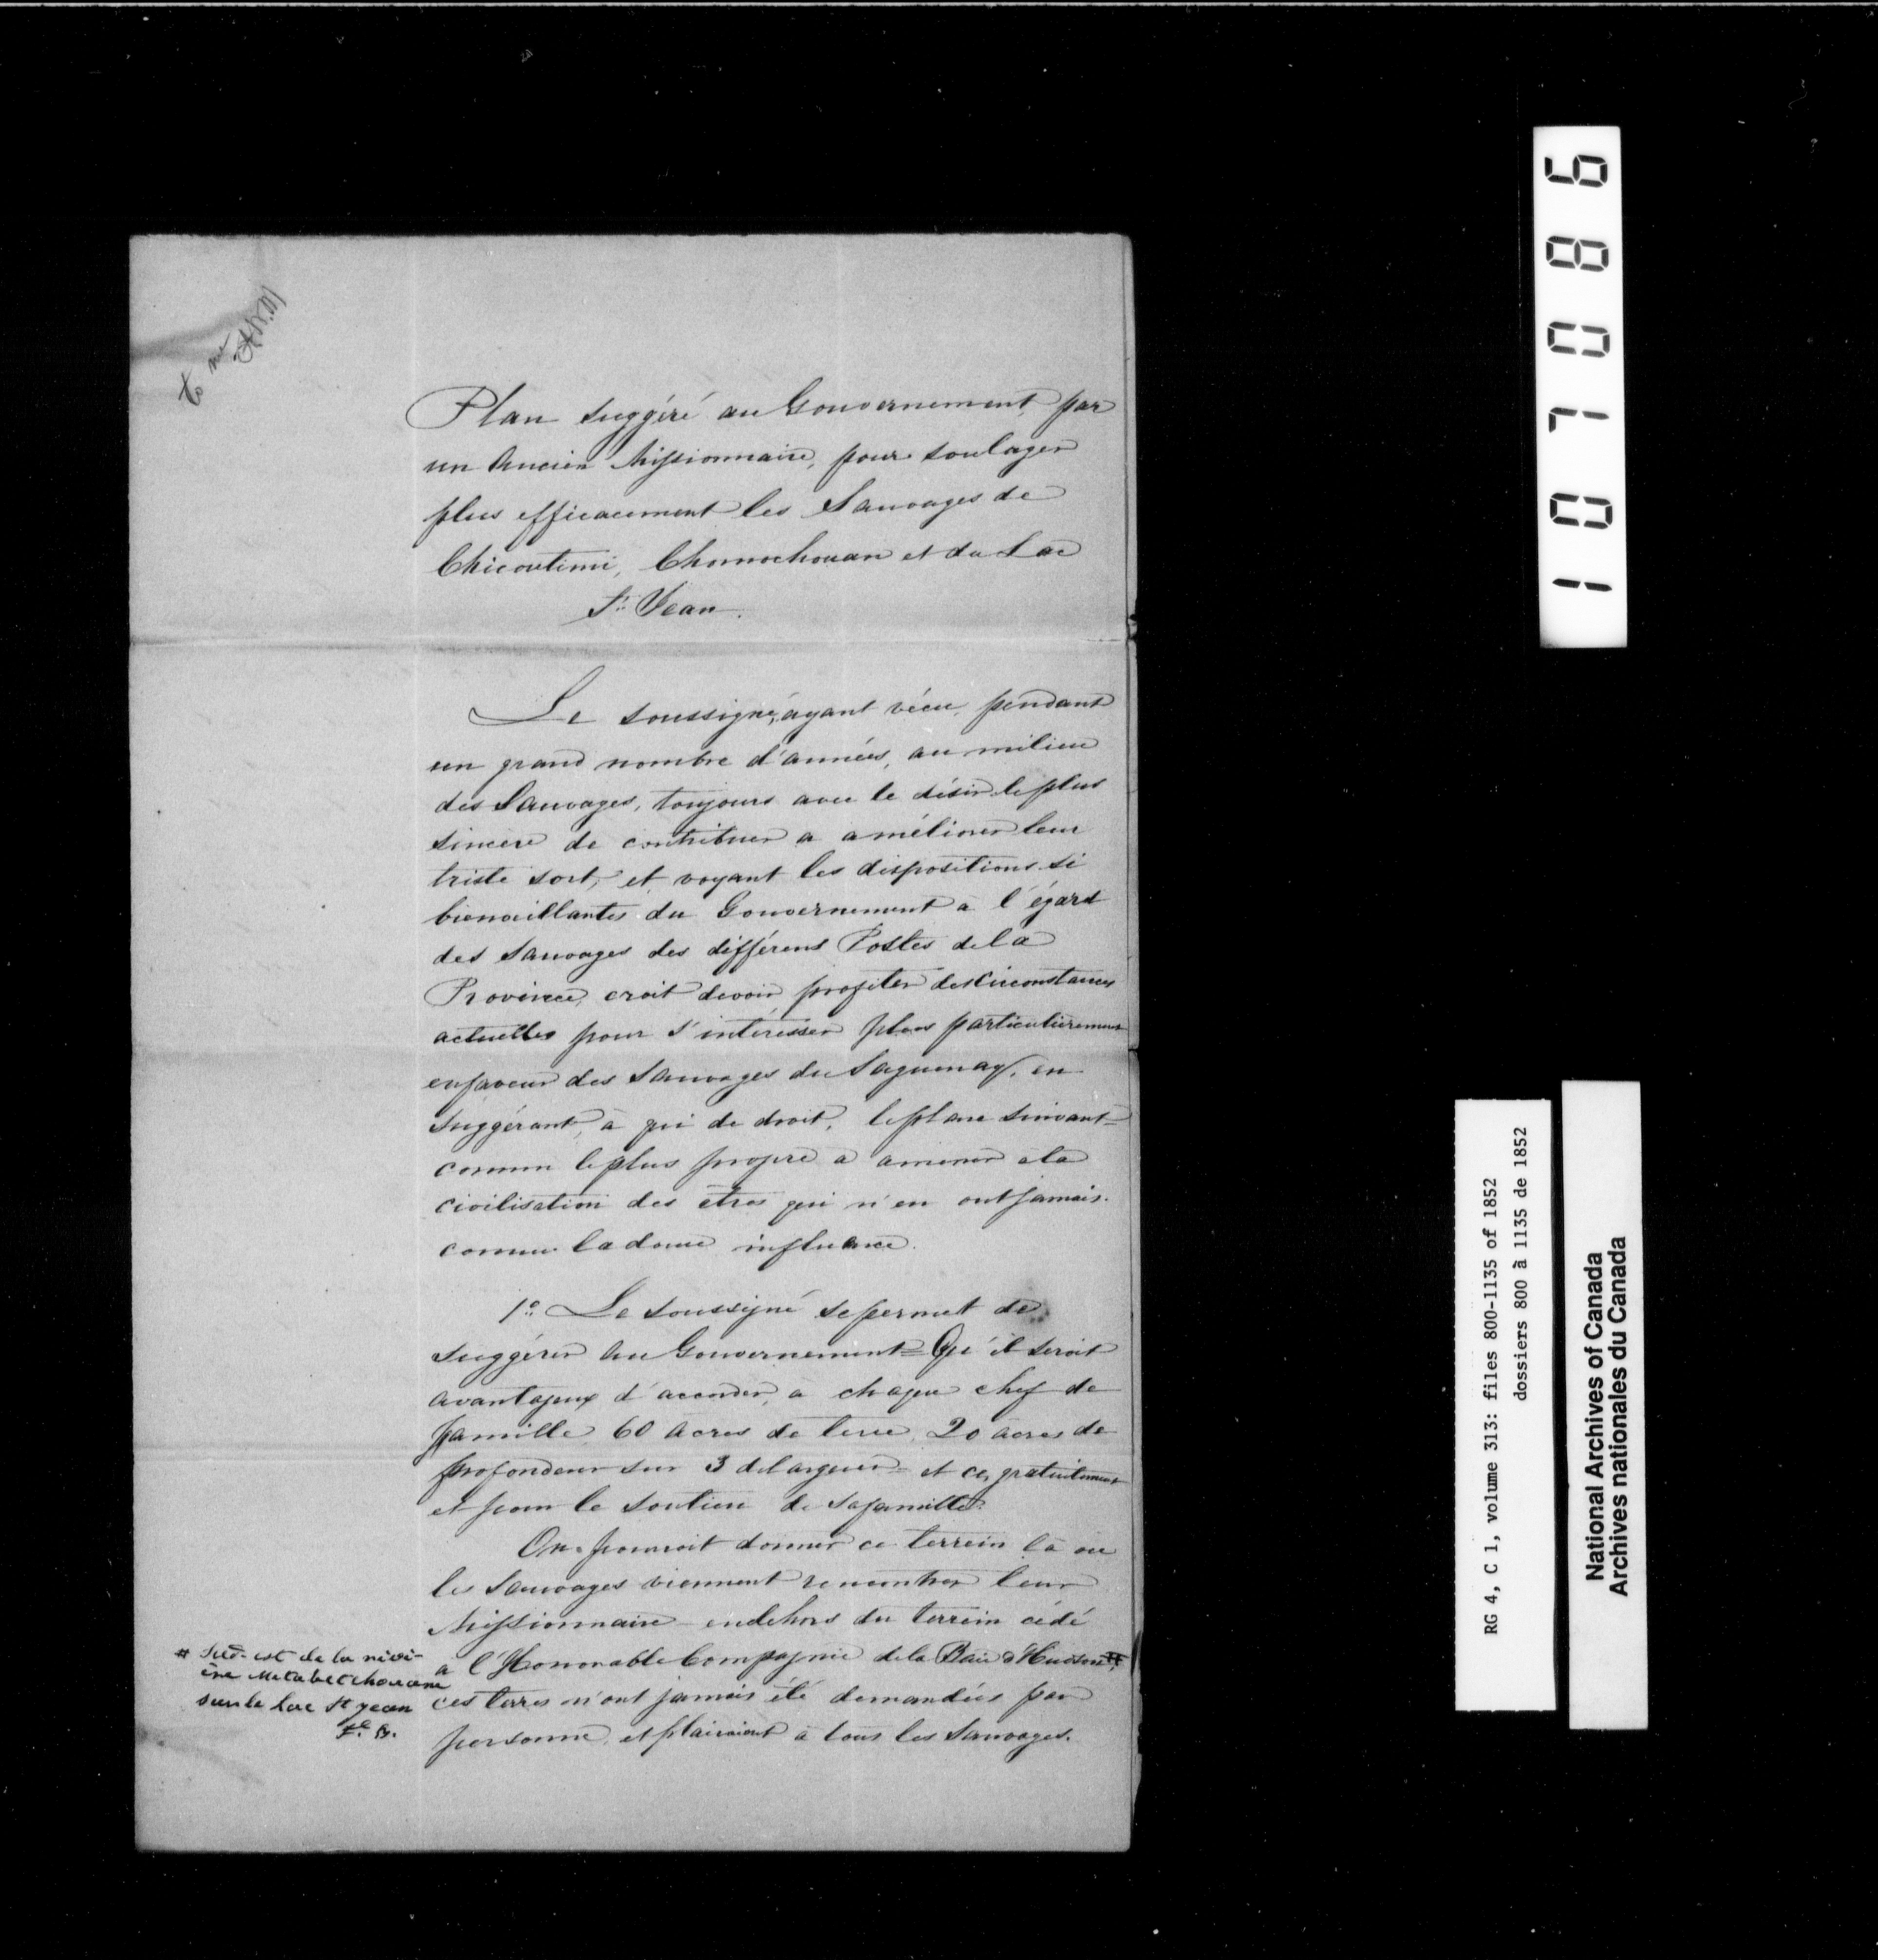 Plan suggéré au Gouvernement, par
un Ancien Missionnaire, pour soulager
plus efficacement les Sauvages de
Chicoutimi, Chomochouan et du Lac
St. Jean.
Le soussigné, ayant vécu, pendant
un grand nombre d'années, au milieu
des Sauvages, toujours avec le désir le plus
sincère de contribuer a améliorer leur
triste sort, et voyant les dispositions si
bienveillantes du Gouvernement à l'égard
des Sauvages des différens Postes de la
Province, croit devoir profiter des circonstances
actuelles pour s'intéresser plus particulièrement
en faveur des Sauvages du Saguenay, en
suggérant, à qui de droit, le plan suivant=
comme le plus propre a amener a la
civilisation des êtres qui n'en ont jamais
connu la douce influence.
1o. Le soussigné se permet de
suggérer au Gouvernement= Qu'il seroit
avantageux d'accorder, a chaque chef de
famille 60 acres de terre, 20 acres de
profondeur sur 3 de largeur= et ce, gratuitement
et pour le soutien de sa famille.
On pourroit donner ce terrein là ou
les Sauvages viennent rencontrer leur
Missionnaire en dehors du terrein cédé
à l'Honorable Compagnie de la Baie d'Hudson #,
ces terres n'ont jamais été demandées par
personne, et plairaient à tous les Sauvages.
# Sud-est de la rivi-
ère Metabetchouane
sur le lac St Jean
F. B.
107086
RG 4, C 1, volume 313: files 800-1135 of 1852
dossiers 800 à 1135 de 1852
National Archives of Canada
Archives nationales du Canada